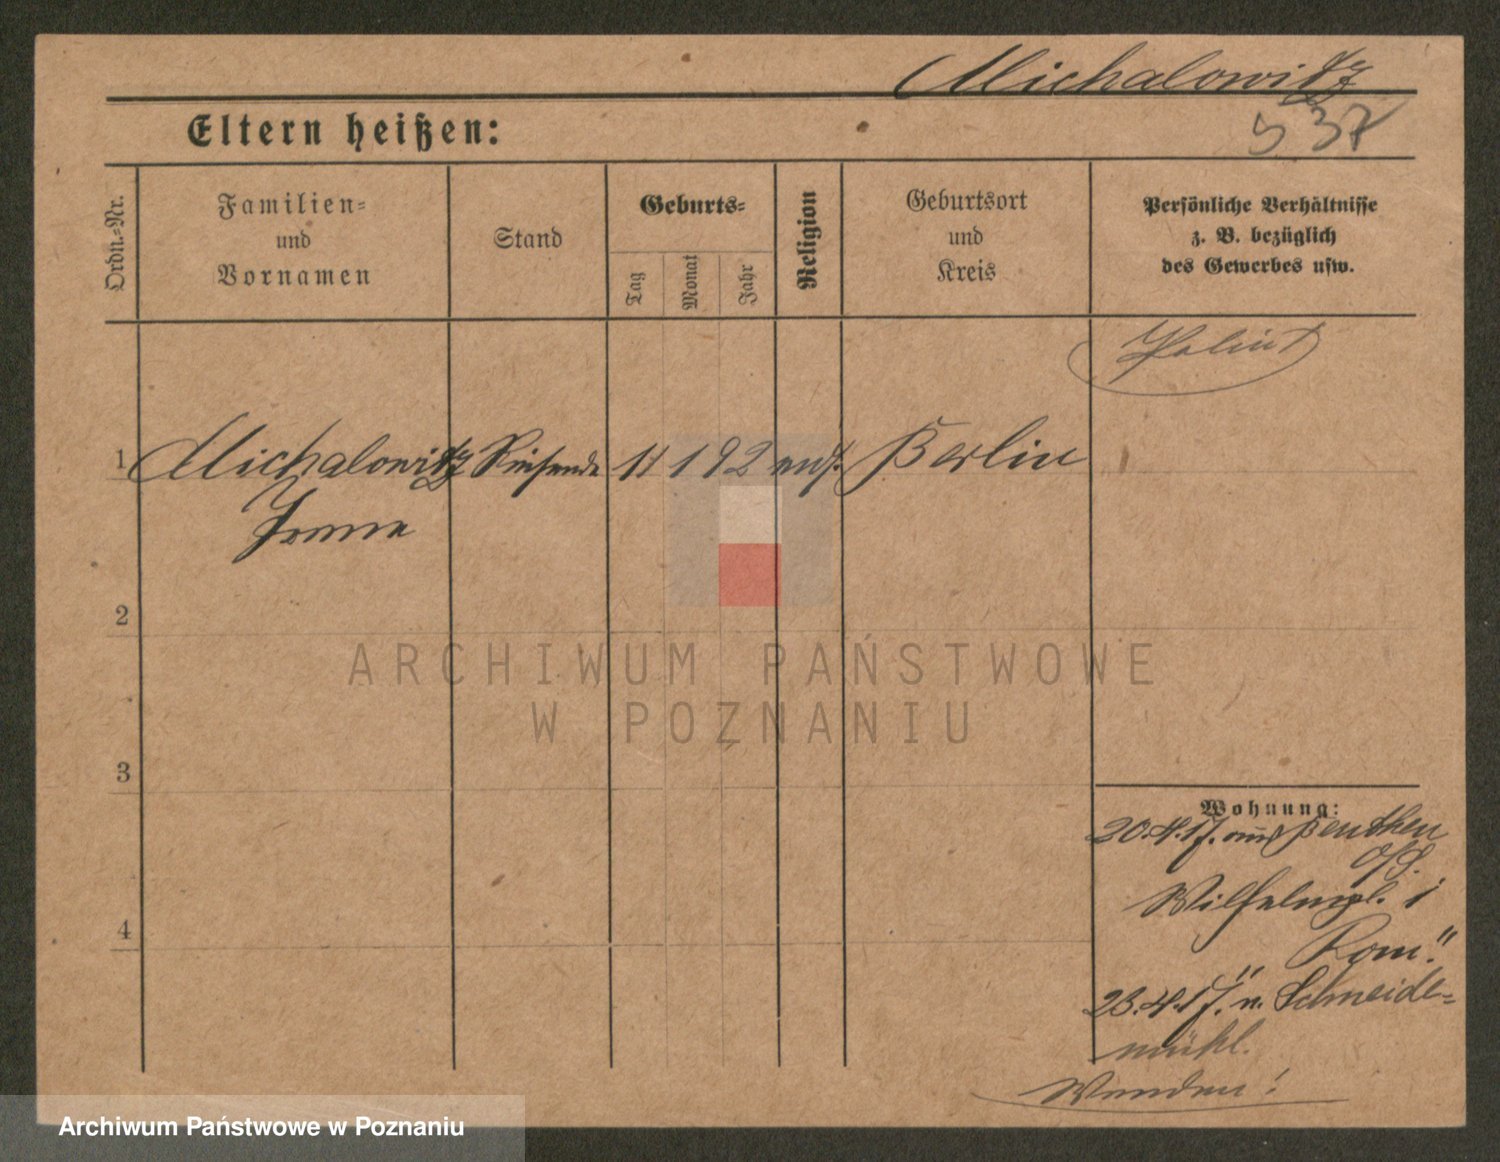 Michalowitz
537
Eltern heißen:
Ordn.-Nr.
Familien-
und
Vornamen
Stand
Geburts-
Tag
Monat
Jahr
Religion
Geburtsort
und
Kreis
Persönliche Verhältnisse
z. B. bezüglich
des Gewerbes usw.
1 Michalowitz Reisende 11 1 92 Berlin
2
ARCHIWUM PAŃSTWOWE
W POZNANIU
3
Wohnung:
20.4.17. aus Beuthen
O/S.
4
Wilhelmpl. 1
"Rom"
23.4.17. n. Schneide-
mühl.
Wenden!
Archiwum Państwowe w Poznaniu